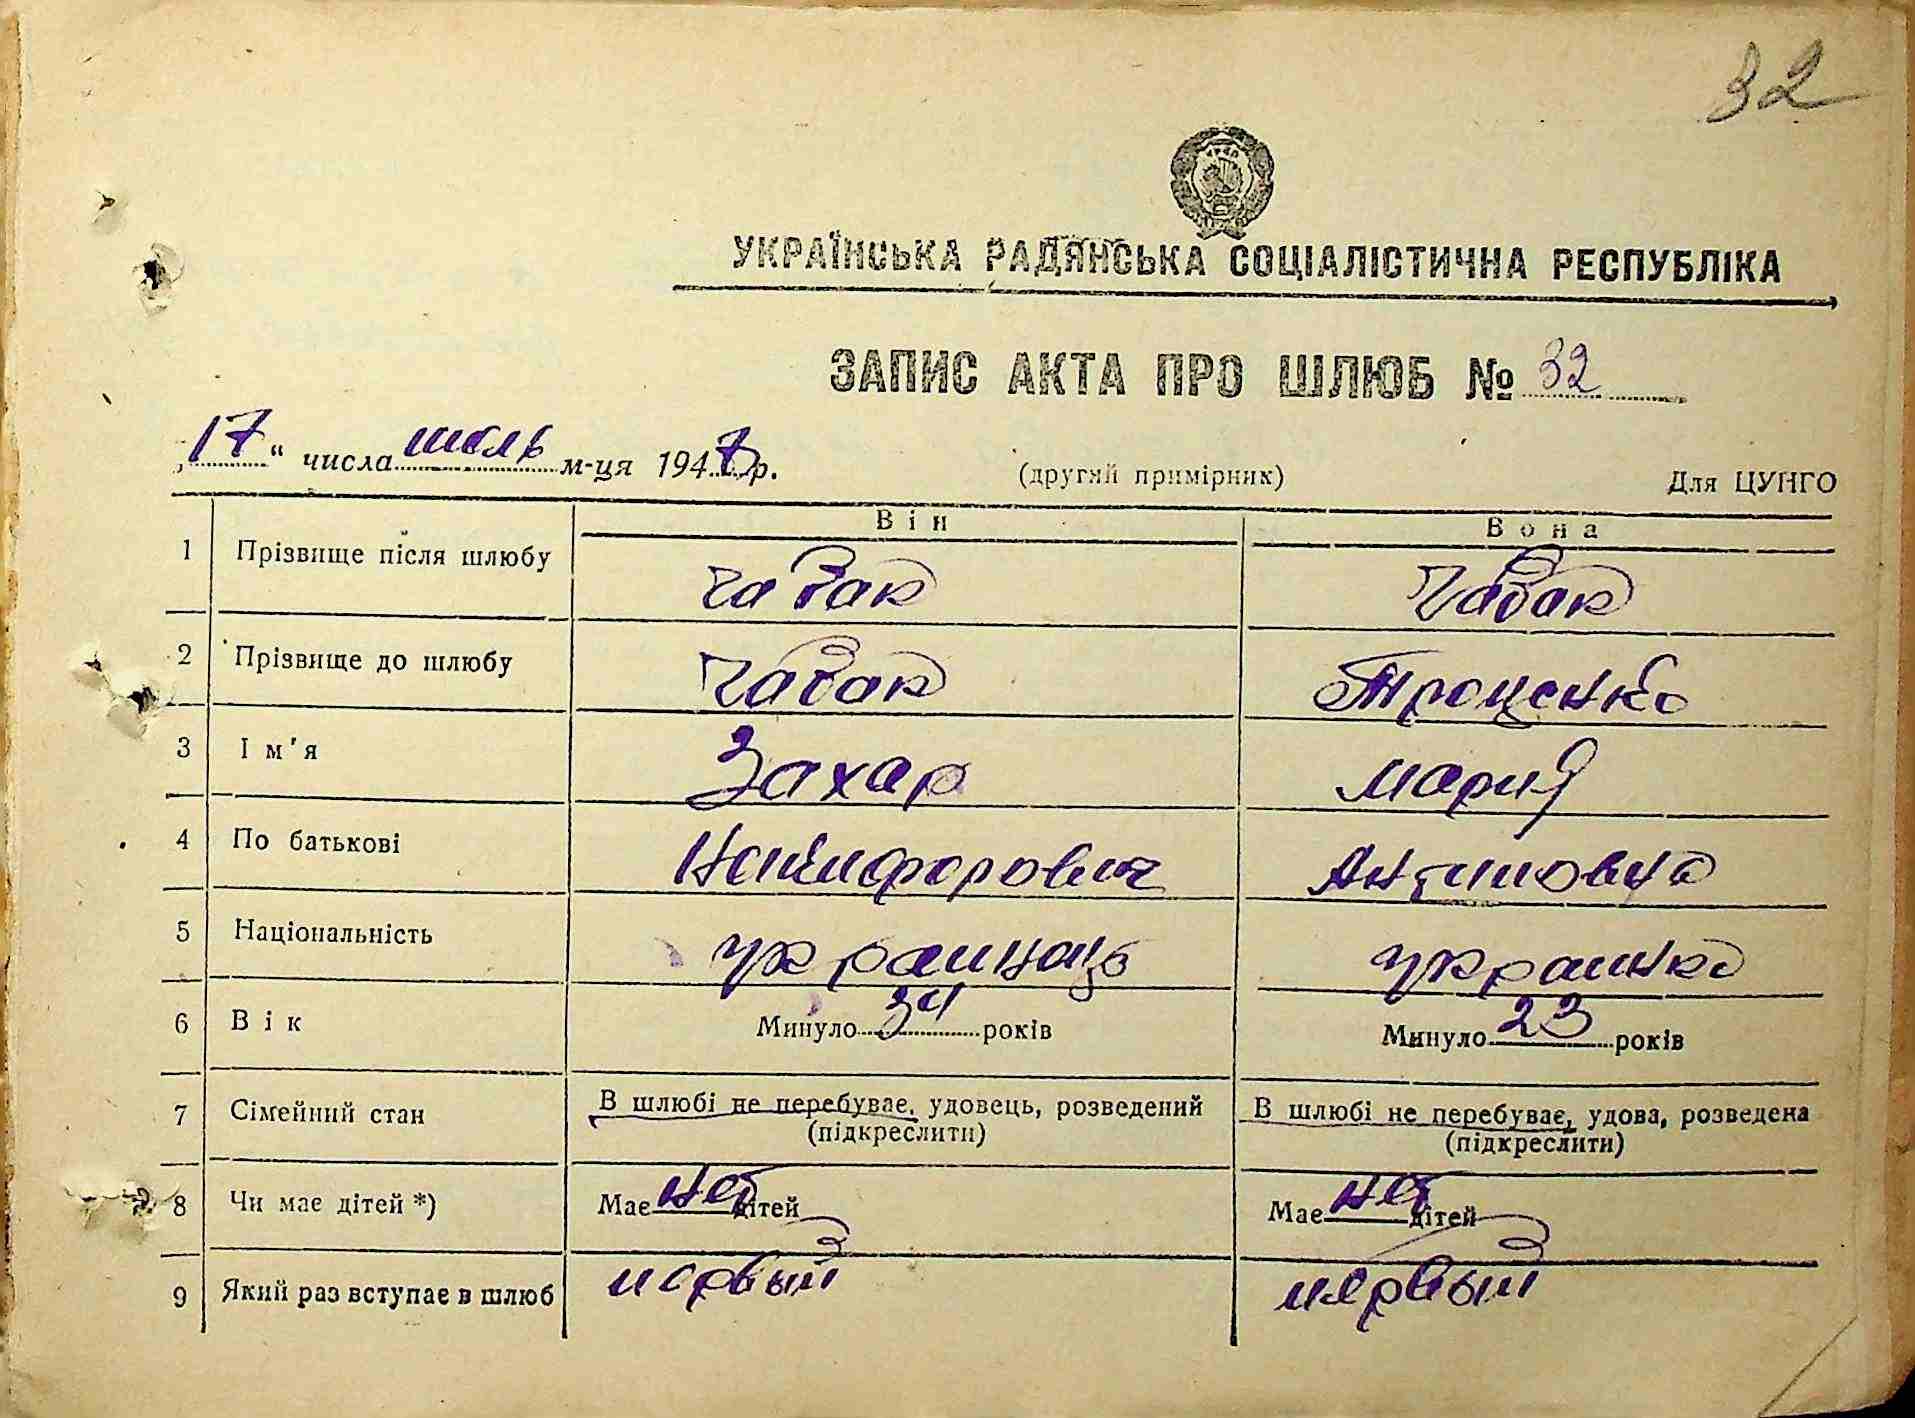 32
УКРАЇНСЬКА РАДЯНСЬКА СОЦІАЛІСТИЧНА РЕСПУБЛІКА
ЗАПИС АКТА ПРО ШЛЮБ № 32
„17“ числа июль м-ця 1947 р. (другий примірник) Для ЦУНГО
Він Вона
1 Прізвище після шлюбу Чабак Чабак
2 Прізвище до шлюбу Чабак Троценко
3 Ім'я Захар Мария
4 По батькові Никифорович Антиповна
5 Національність украинець украинка
6 Вік Минуло 34 років Минуло 23 років
7 Сімейний стан В шлюбі не перебуває, удовець, розведений В шлюбі не перебуває, удова, розведена
(підкреслити) (підкреслити)
8 Чи має дітей *) Має нет дітей Має нет дітей
9 Який раз вступає в шлюб первый первый